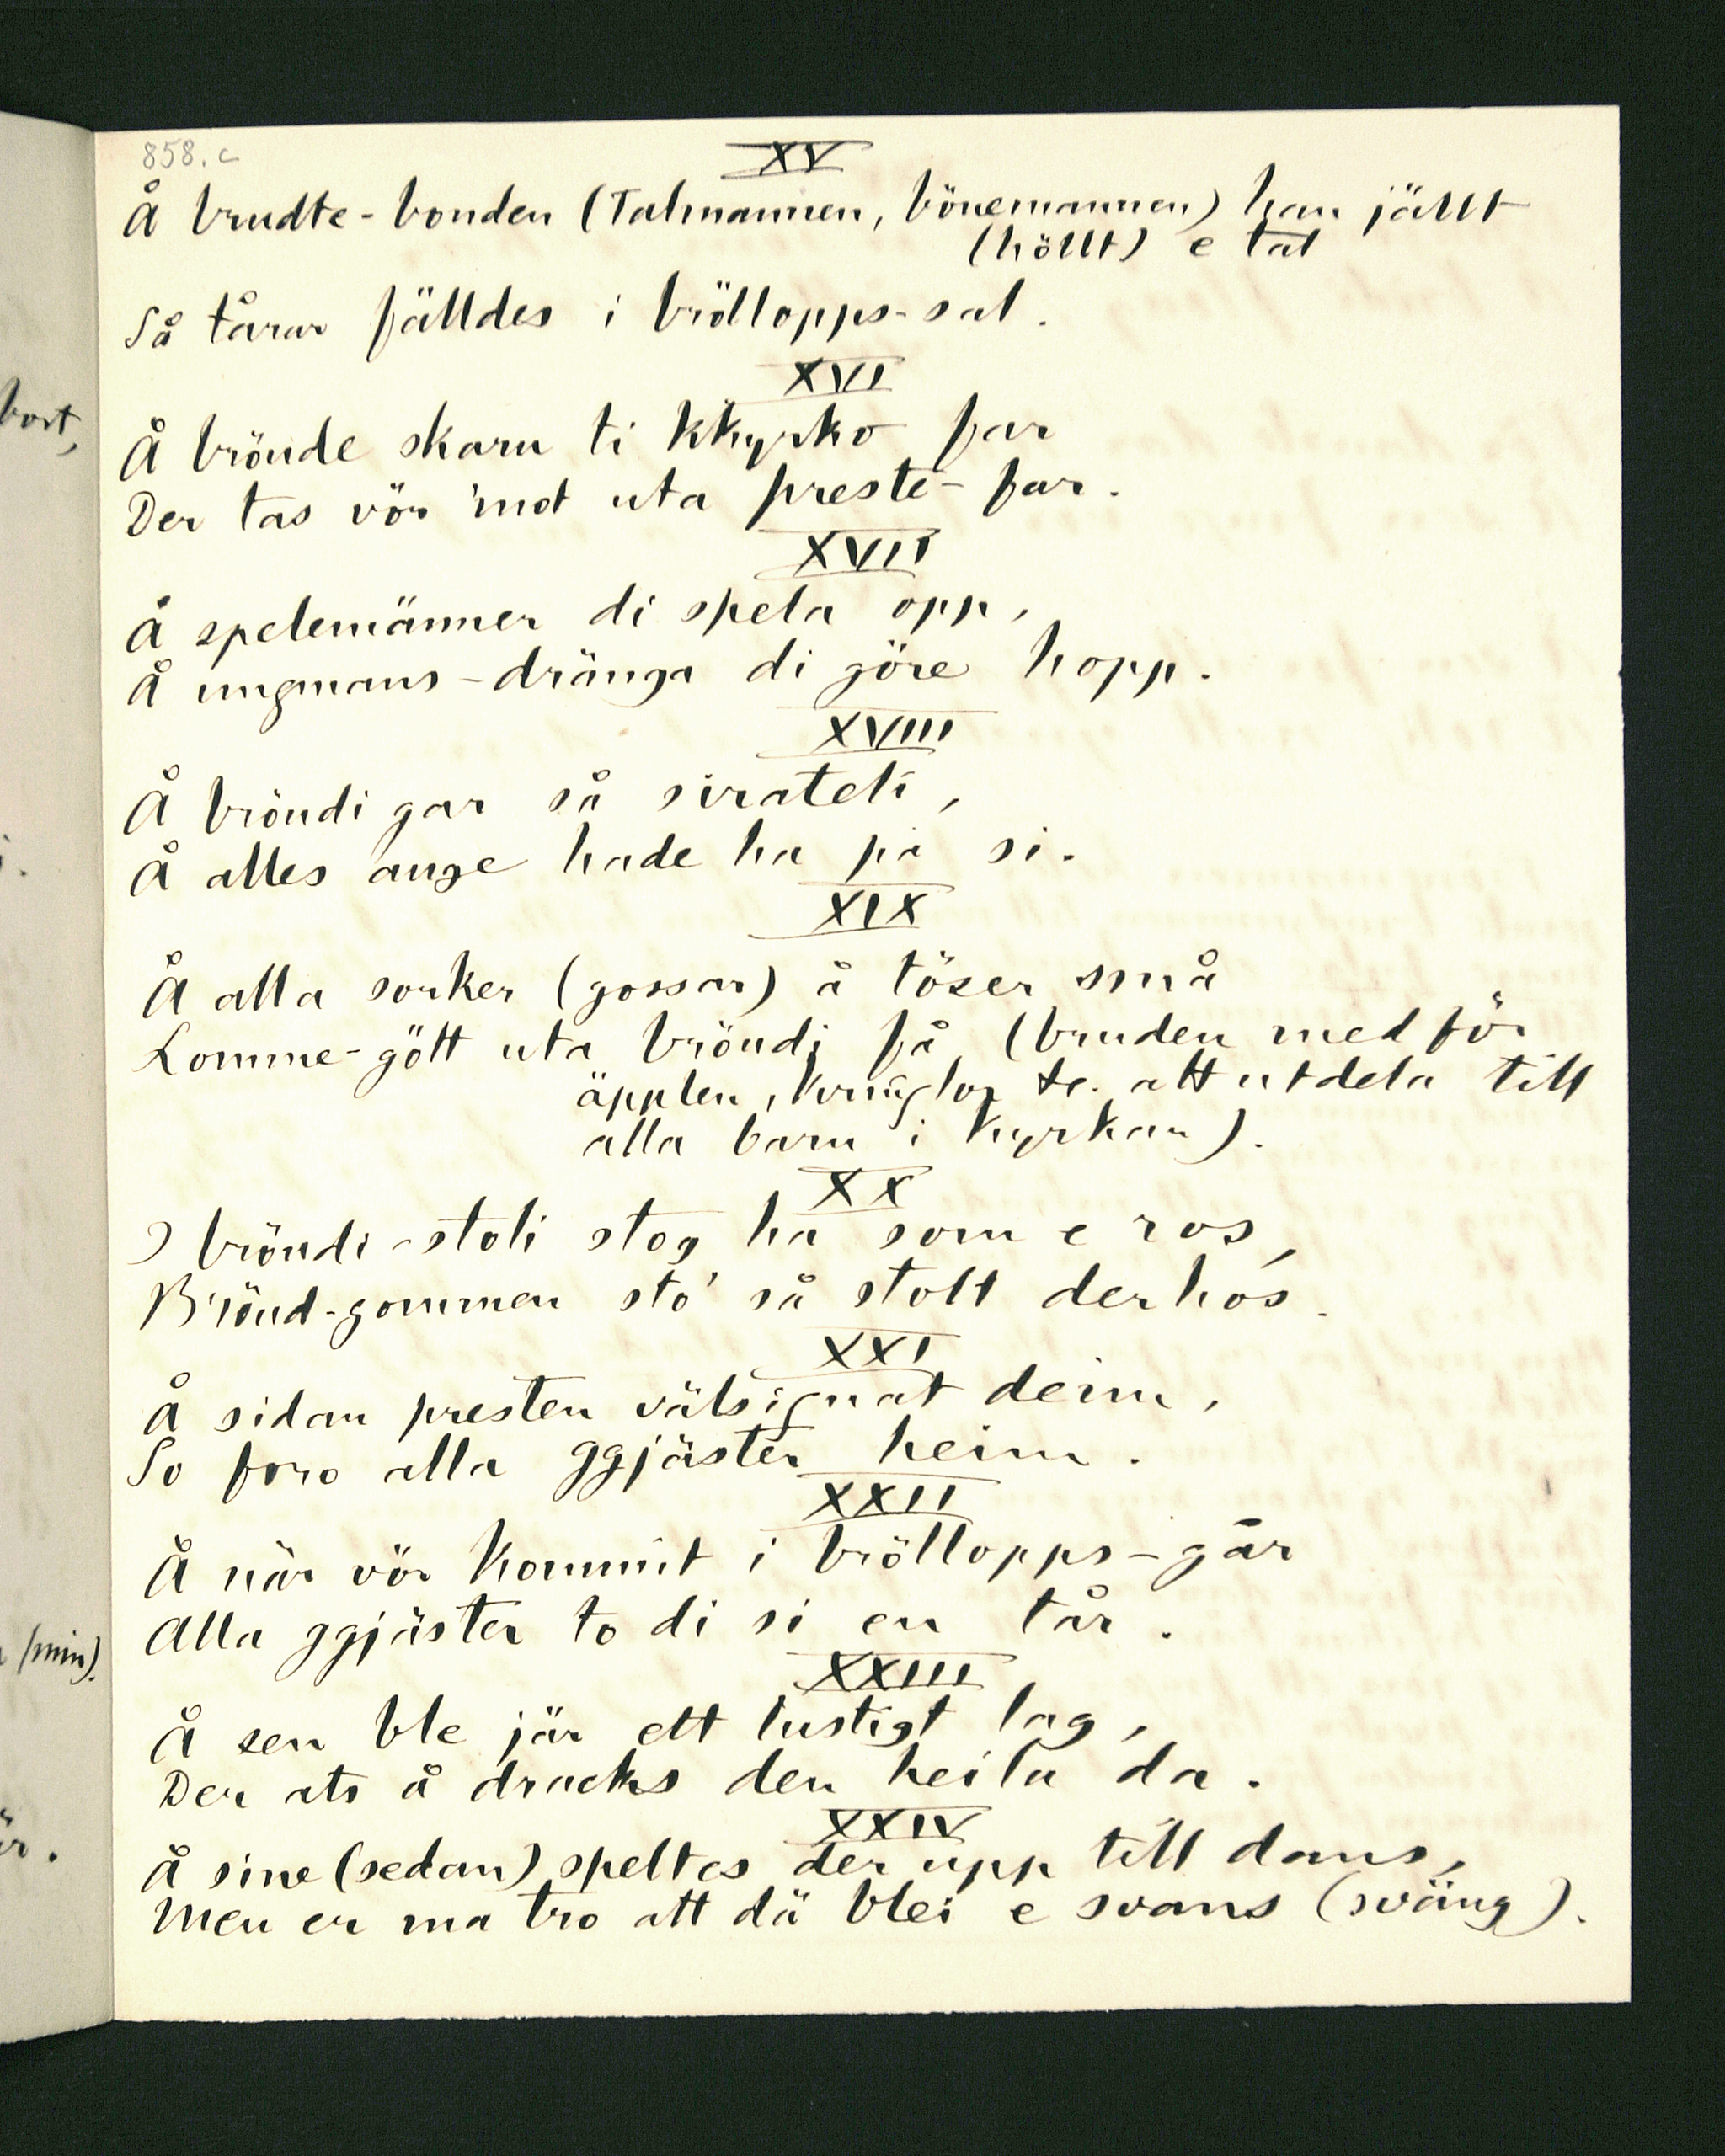 858.c
XV
Å brudte-bonden (Talmannen, bönemannen) han jällt
(höllt) e tal
Så tårar fälldes i bröllopps-sal.
XVI
bort,
Å brönde skarn ti kkyrko far
Der tas vör 'mot uta preste-far.
XVII
Å spelemänner di spela opp,
Å ungmans-dränga di göre hopp.
XVIII
Å bröndi gar så sirateli,
Å alles auge hade ha på si.
XIX
Å alla sorker (gossar) å töser små
Lomme-gött uta bröndi få (bruden medför
äpplen, kringlor &c. att utdela till
alla barn i kyrkan).
XX
I bröndi-stoli stog ha som e ros,
Brönd-gommen sto' så stolt derhos.
XXI
Å sidan presten välsignat deim,
So foro alla ggjäster heim.
XXII
Å när vör kommit i bröllopps-går
Alla ggjäster to di si en tår.
(min).
XXIII
Å sen ble jär ett lustigt lag,
Der ats å dracks den heila da.
XXIV
Å sine (sedan) speltes der upp till dans,
Men er ma tro att dä blei e svans (sväng).